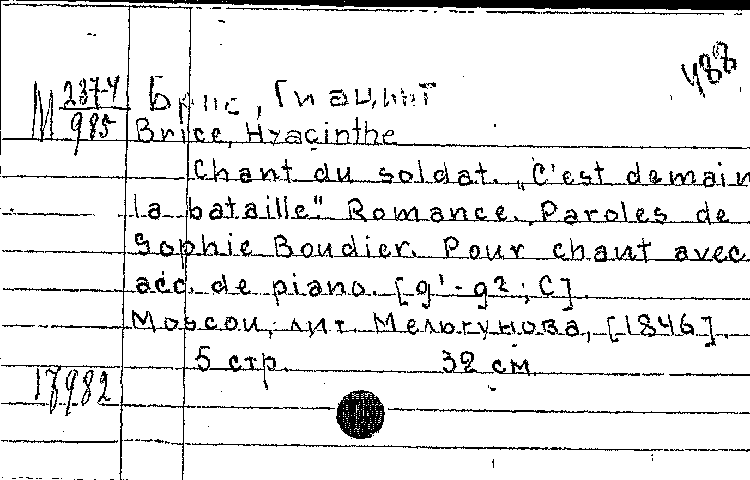 488
М 237-4/985 Брис, Гиацинт
Brice, Hyacinthe
Chant du soldat. „C'est demain
la bataille". Romance. Paroles de
Sophie Boudier. Pour chant avec
acc. de piano. [g¹-g²; C].
Moscou, лит. Мельгунова, [1846].
5 стр. 32 см.
17982